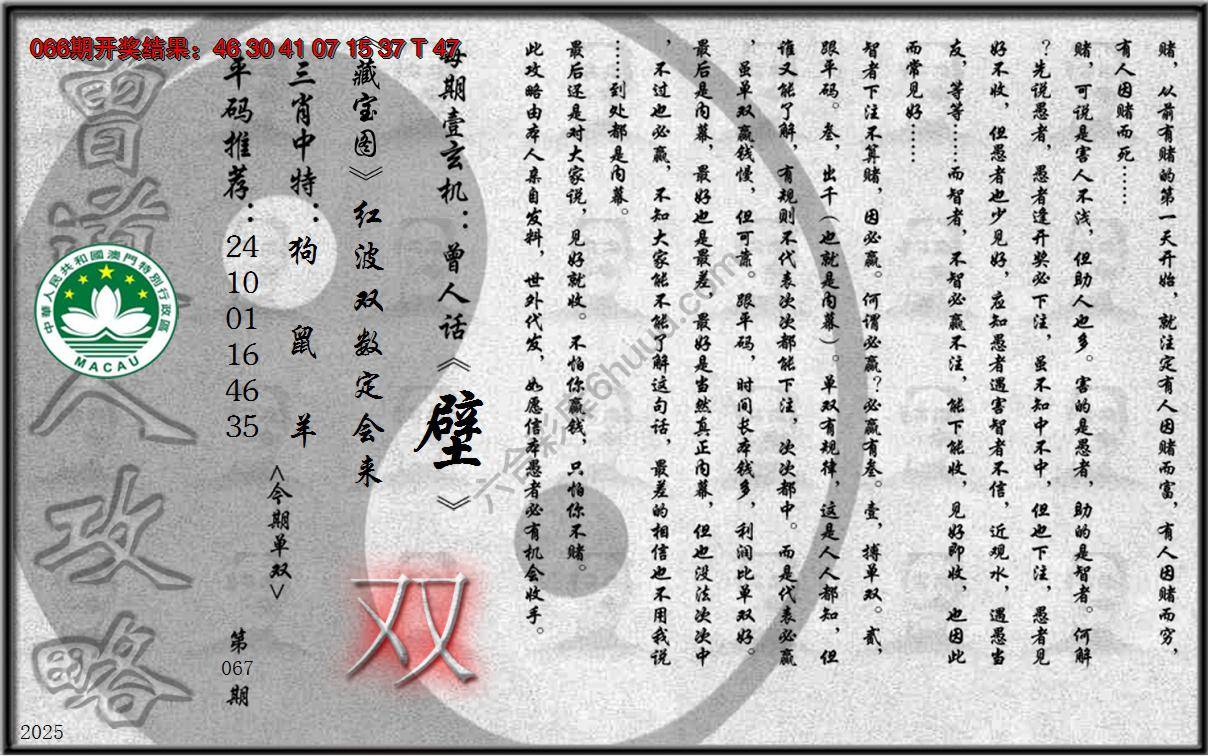 066期开奖结果：46 30 41 07 15 37 T 47
赌，从前有赌的第一天开始，就注定有人因赌而富，有人因赌而穷，
有人因赌而死……
赌，可说是害人不浅，但助人也多。害的是愚者，助的是智者。何解
？先说愚者，愚者逢开奖必下注，虽不知中不中，但也下注，愚者见
好不收，但愚者也少见好，应知愚者遇害智者不信，近观水，遇愚当
友，等等……而智者，不智必赢不注，能下能收，见好即收，也因此
而常见好……
智者下注不算赌，因必赢。何谓必赢？必赢有叁。壹，搏单双。贰，
跟平码。叁，出千（也就是内幕）。单双有规律，这是人人都知，但
谁又能了解，有规则不代表次次都能下注，次次都中。而是代表必赢
，虽单双赢钱慢，但可靠。跟平码，时间长本钱多，利润比单双好。
最后是内幕，最好也是最差，最好是当然真正内幕，但也没法次次中
，不过也必赢，不知大家能不能了解这句话，最差的相信也不用我说
……到处都是内幕。
最后还是对大家说，见好就收。不怕你赢钱，只怕你不赌。
此攻略由本人亲自发料，世外代发，如愿信本愚者必有机会收手。
每期壹玄机：曾人话《壁》
《藏宝图》红波双数定会来
双
三肖中特：狗 鼠 羊
<今期单双>
平码推荐：24 10 01 16 46 35
第067期
曾道人攻略
中華人民共和國澳門特別行政區
MACAU
六合彩库6huuu.com
2025